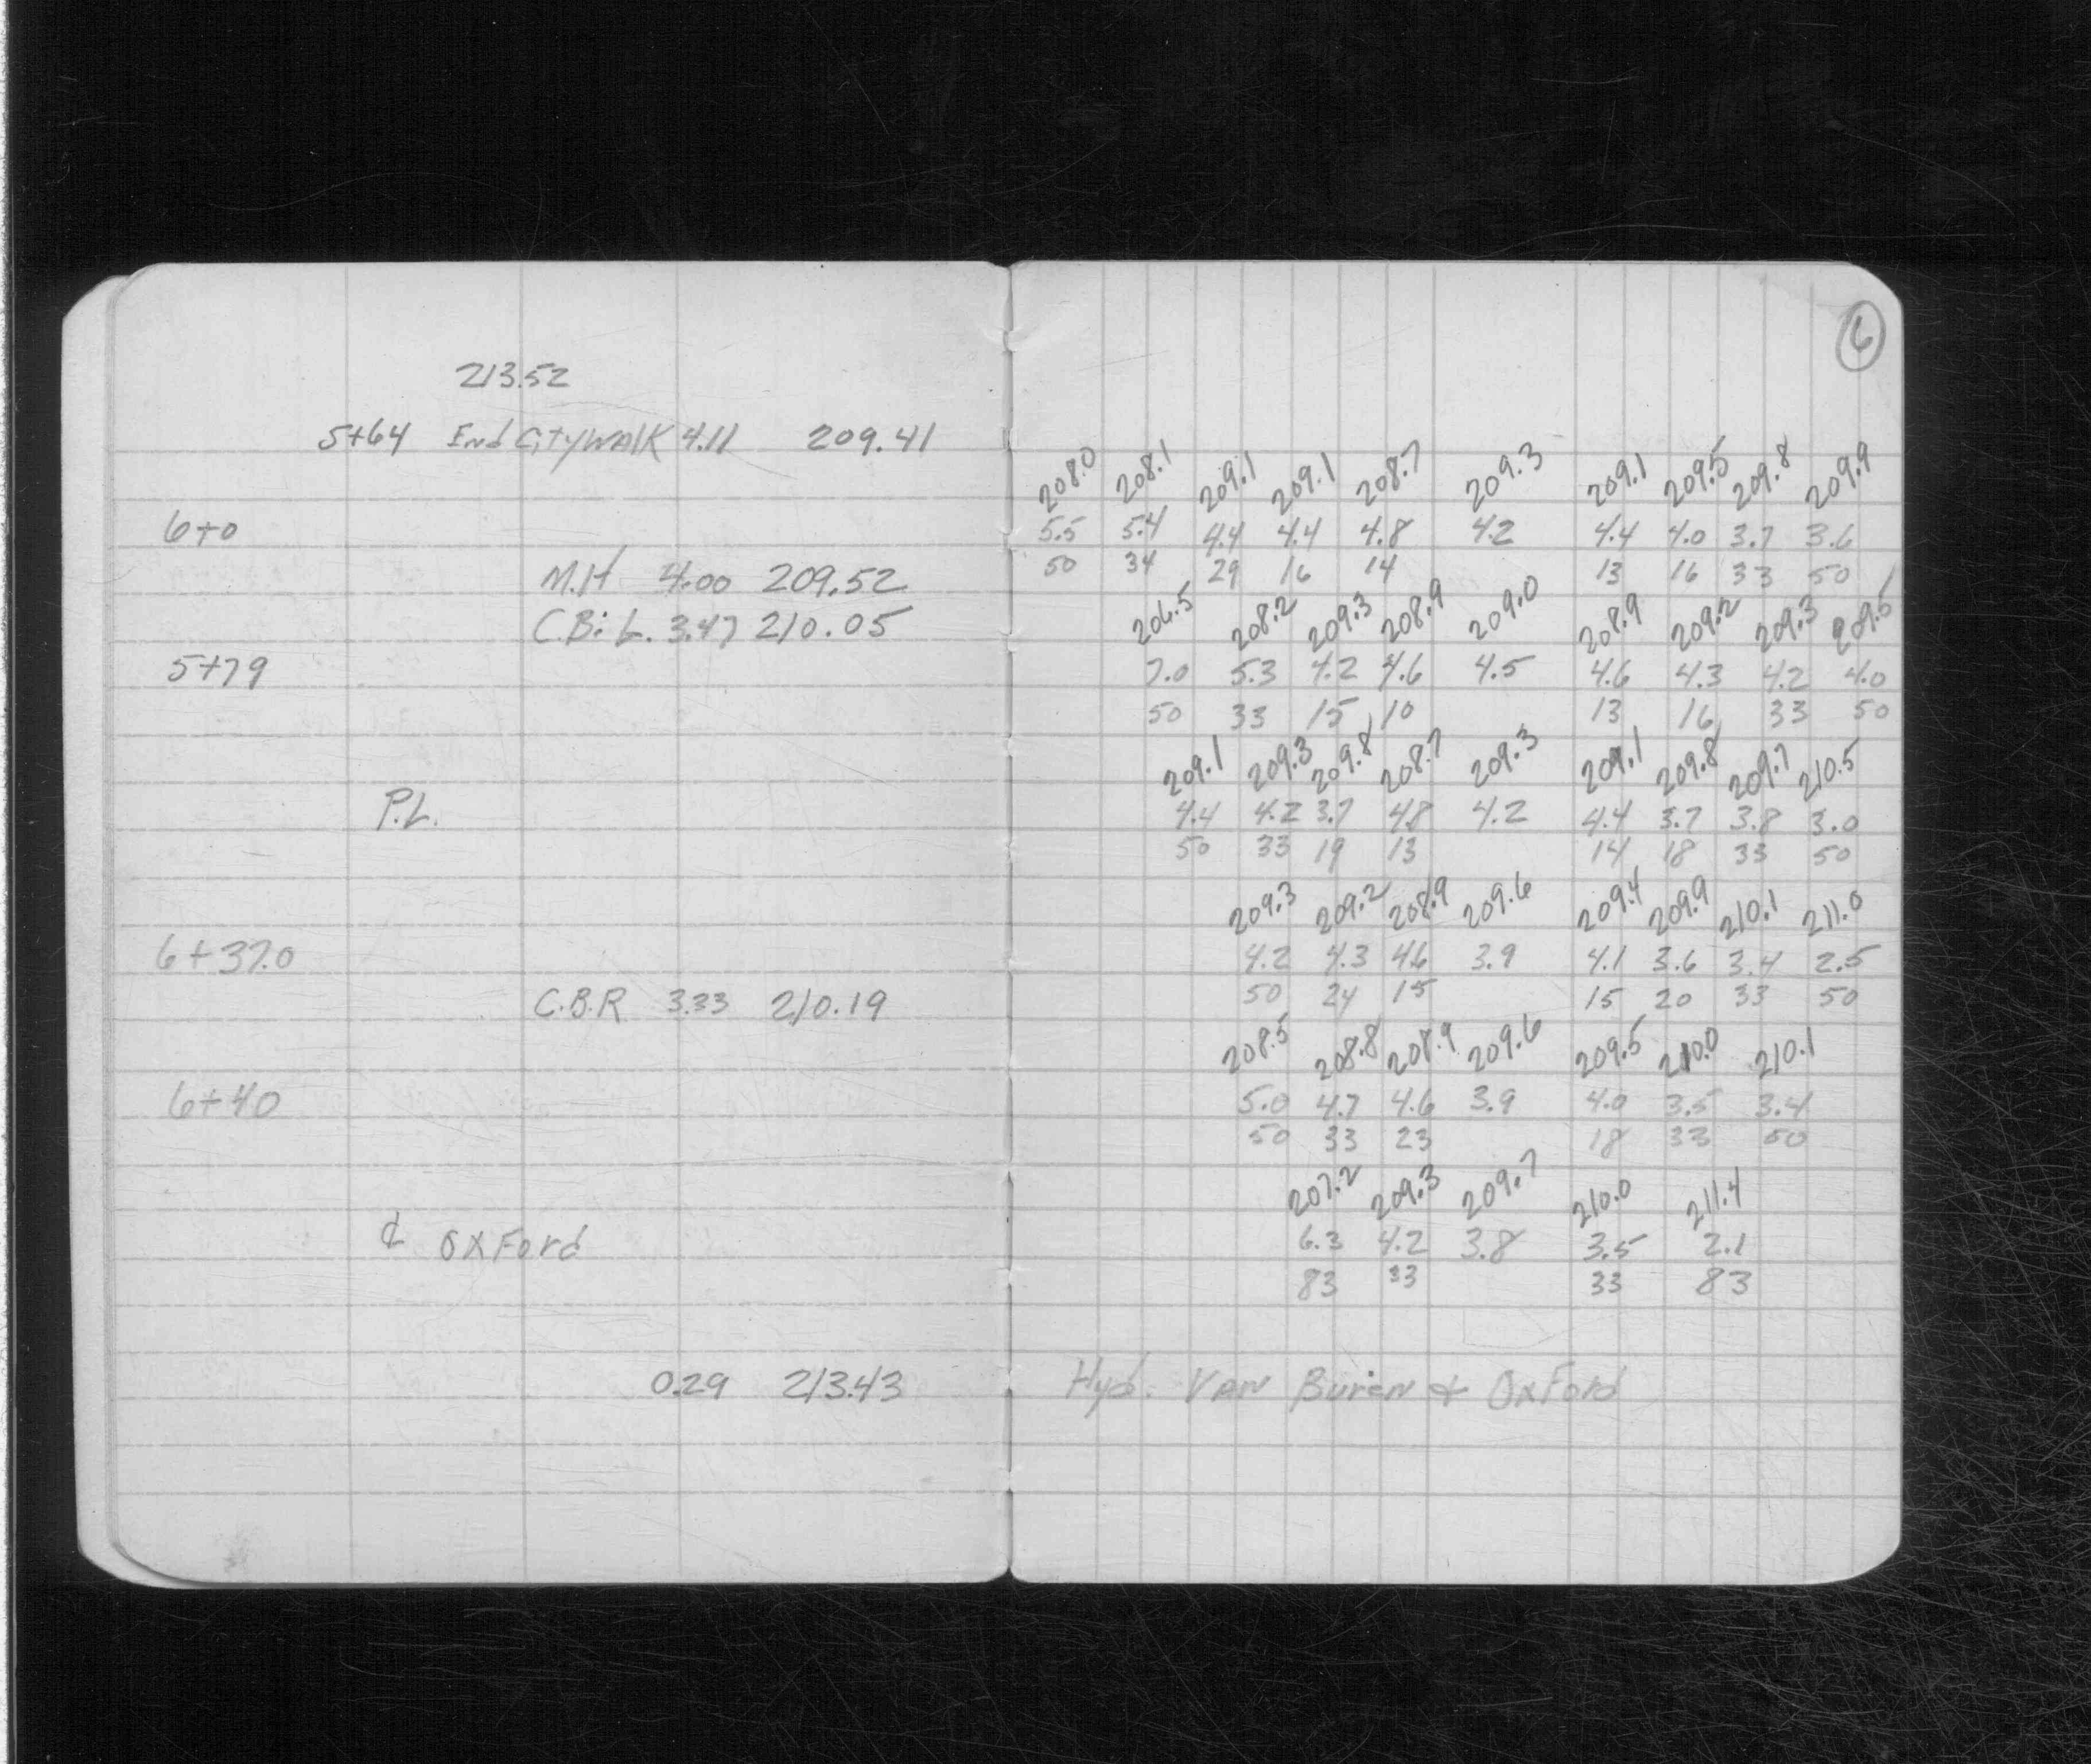 6
213.52
5+64 End City Walk 4.11 209.41
208.0 208.1 209.1 209.1 208.7 209.3 209.1 209.5 209.8 209.9
6+0 5.5 5.4 4.4 4.4 4.8 4.2 4.4 4.0 3.7 3.6
M.H 4.00 209.52 50 34 29 16 14 13 16 33 50
C.B. L. 3.47 210.05 206.5 208.2 209.3 208.9 209.0 208.9 209.2 209.3 209.5
5+79 7.0 5.3 4.2 4.6 4.5 4.6 4.3 4.2 4.0
50 33 15 10 13 16 33 50
209.1 209.3 209.8 208.7 209.3 209.1 209.8 209.7 210.5
P.L. 4.4 4.2 3.7 4.8 4.2 4.4 3.7 3.8 3.0
50 33 19 13 14 18 33 50
209.3 209.2 208.9 209.6 209.4 209.9 210.1 211.0
6+37.0 4.2 4.3 4.6 3.9 4.1 3.6 3.4 2.5
C.B.R 3.33 210.19 50 24 15 15 20 33 50
208.5 208.8 208.9 209.6 209.5 210.0 210.1
6+40 5.0 4.7 4.6 3.9 4.0 3.5 3.4
50 33 23 18 33 50
207.2 209.3 209.7 210.0 211.4
¢ Oxford 6.3 4.2 3.8 3.5 2.1
83 33 33 83
0.29 213.43 Hyd. Van Buren & Oxford